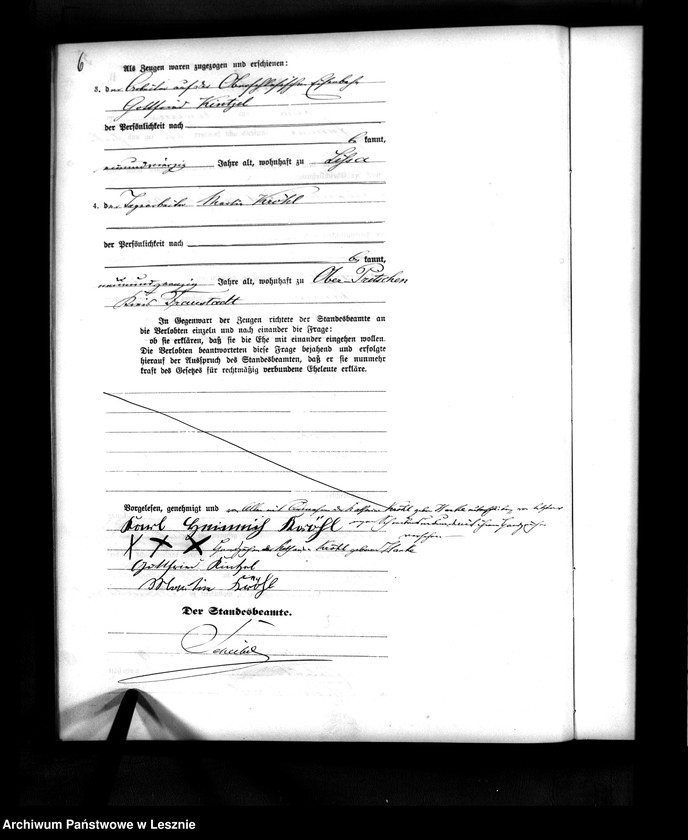 6
Als Zeugen waren zugezogen und erschienen:
3. der Arbeiter auf der Oberschlesischen Eisenbahn
Gottfried Kintzel
der Persönlichkeit nach
be kannt,
neunundvierzig Jahre alt, wohnhaft zu Lissa
4. der Martin Kröhl
der Persönlichkeit nach
be kannt,
neunundzwanzig Jahre alt, wohnhaft zu Ober-Pritschen
Kreis Fraustadt
In Gegenwart der Zeugen richtete der Standesbeamte an
die Verlobten einzeln und nach einander die Frage:
ob sie erklären, daß sie die Ehe mit einander eingehen wollen.
Die Verlobten beantworteten diese Frage bejahend und erfolgte
hierauf der Ausspruch des Standesbeamten, daß er sie nunmehr
kraft des Gesetzes für rechtmäßig verbundene Eheleute erkläre.
Vorgelesen, genehmigt und von Allen mit Ausnahme der Kröhl geborene unterschrieben, von Letzterer
wegen
versehen
Karl Heinrich Kröhl
XXX Handzeichen der Kröhl geborene
Gottfried Kintzel
Martin Kröhl
Der Standesbeamte.
Archiwum Państwowe w Lesznie